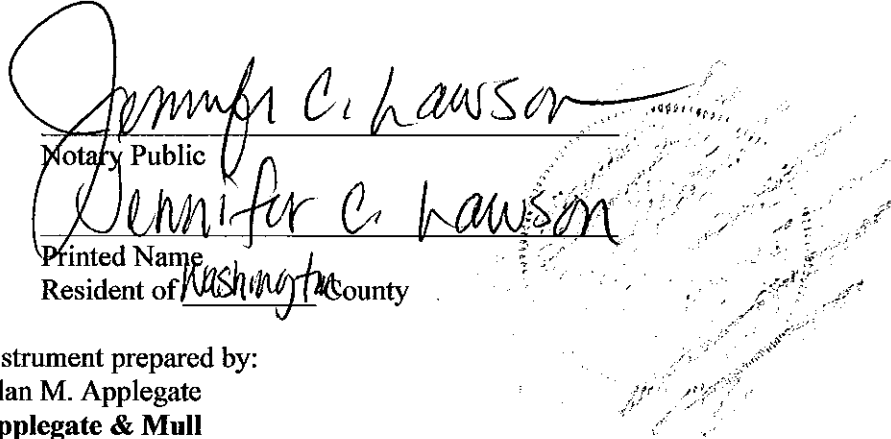 Jennifer C. Lawson
Notary Public
Jennifer C. Lawson
Printed Name
Resident of Washington County
strument prepared by:
lan M. Applegate
pplegate & Mull